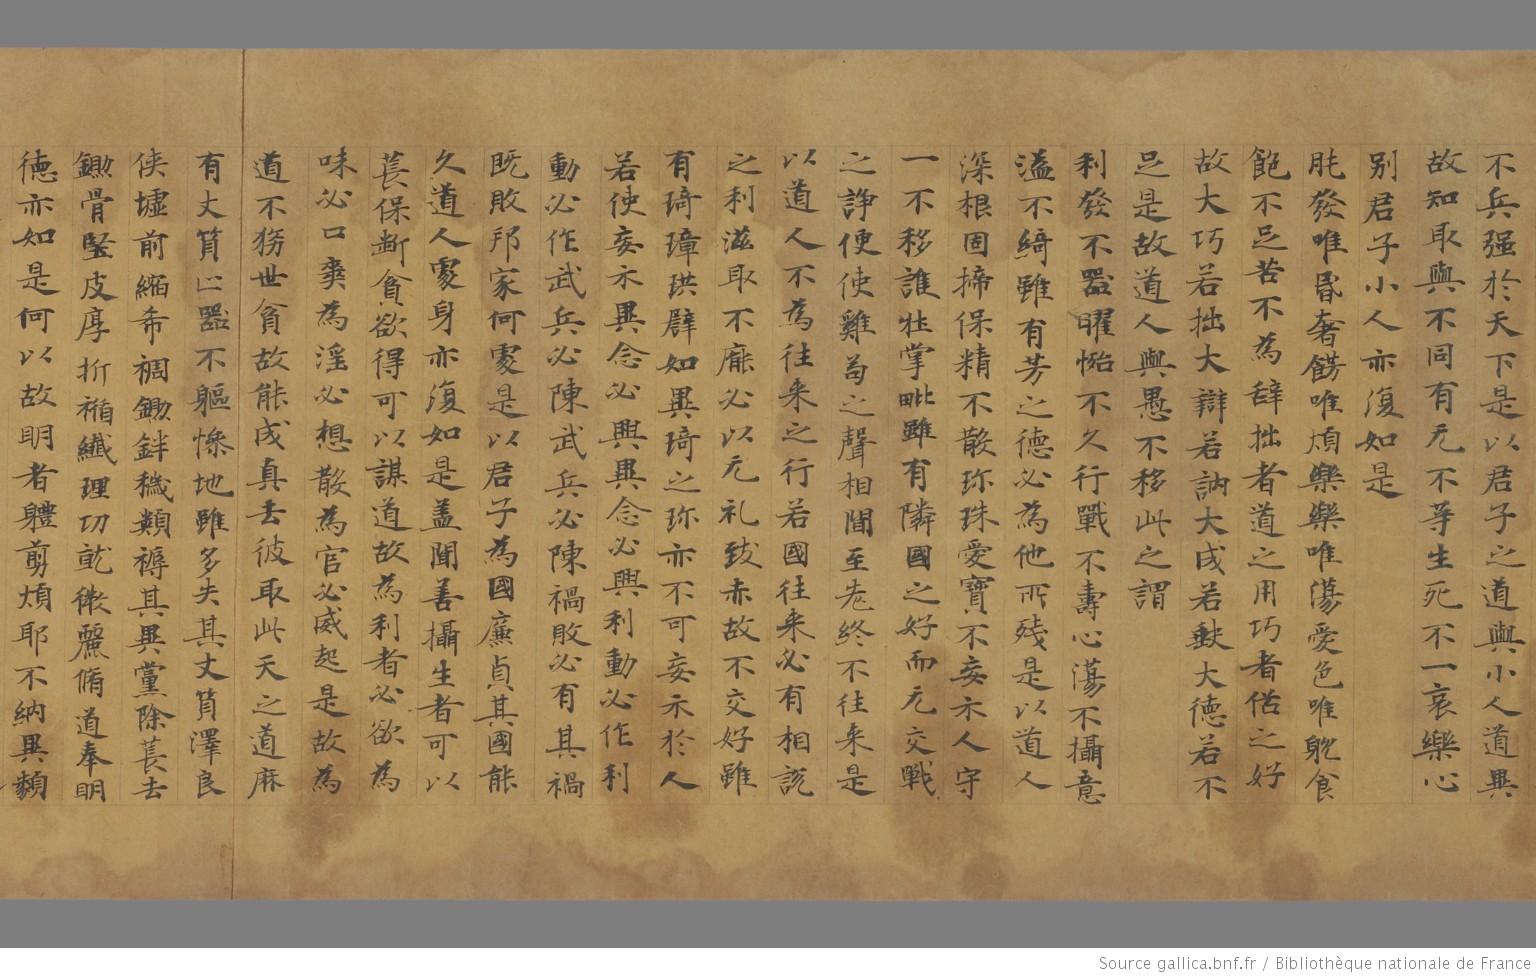 不兵强於天下是以君子之道與小人道異
故知取與不同有无不等生死不一哀樂心
别君子小人亦復如是
肬發唯昬奢餝唯煩樂樂唯蕩愛色唯躭食
飽不足苦不為辝拙者道之用巧者俗之好
故大巧若拙大辯若訥大成若缺大德若不
足是故道人與愚不移此之謂
利發不器曜怡不久行戰不壽心蕩不攝意
溢不綺雖有芳之德必為他所残是以道人
深根固揥保精不散珎珠愛寶不妄示人守
一不移誰壯掌毗雖有隣國之好而无交戰
之諍便使雞苟之聲相聞至老終不往来是
以道人不為往来之行若國往来必有相説
之利滋取不廉必以无礼致赤故不交好雖
有琦璋珙辟如異琦之珎亦不可妄示於人
若使妄示異念必興異念必興利動必作利
動必作武兵必陳武兵必陳禍敗必有其禍
既敗邦家何處是以君子為國廉貞其國能
久道人處身亦復如是盖聞善攝生者可以
萇保斷貪欲得可以謀道故為利者必欲為
味必口爽為淫必想散為官必威起是故為
道不務世貪故能成真去彼取此天之道麻
有丈筫亾器不軀惨地雖多失其丈筫澤良
侠墟前縮希裯鋤銔穢類褥其異黨除萇去
鋤骨堅皮厚折襦纖理切就微麗脩道奉明
德亦如是何以故明者軆剪煩耶不納異纇
Source gallica.bnf.fr / Bibliothèque nationale de France